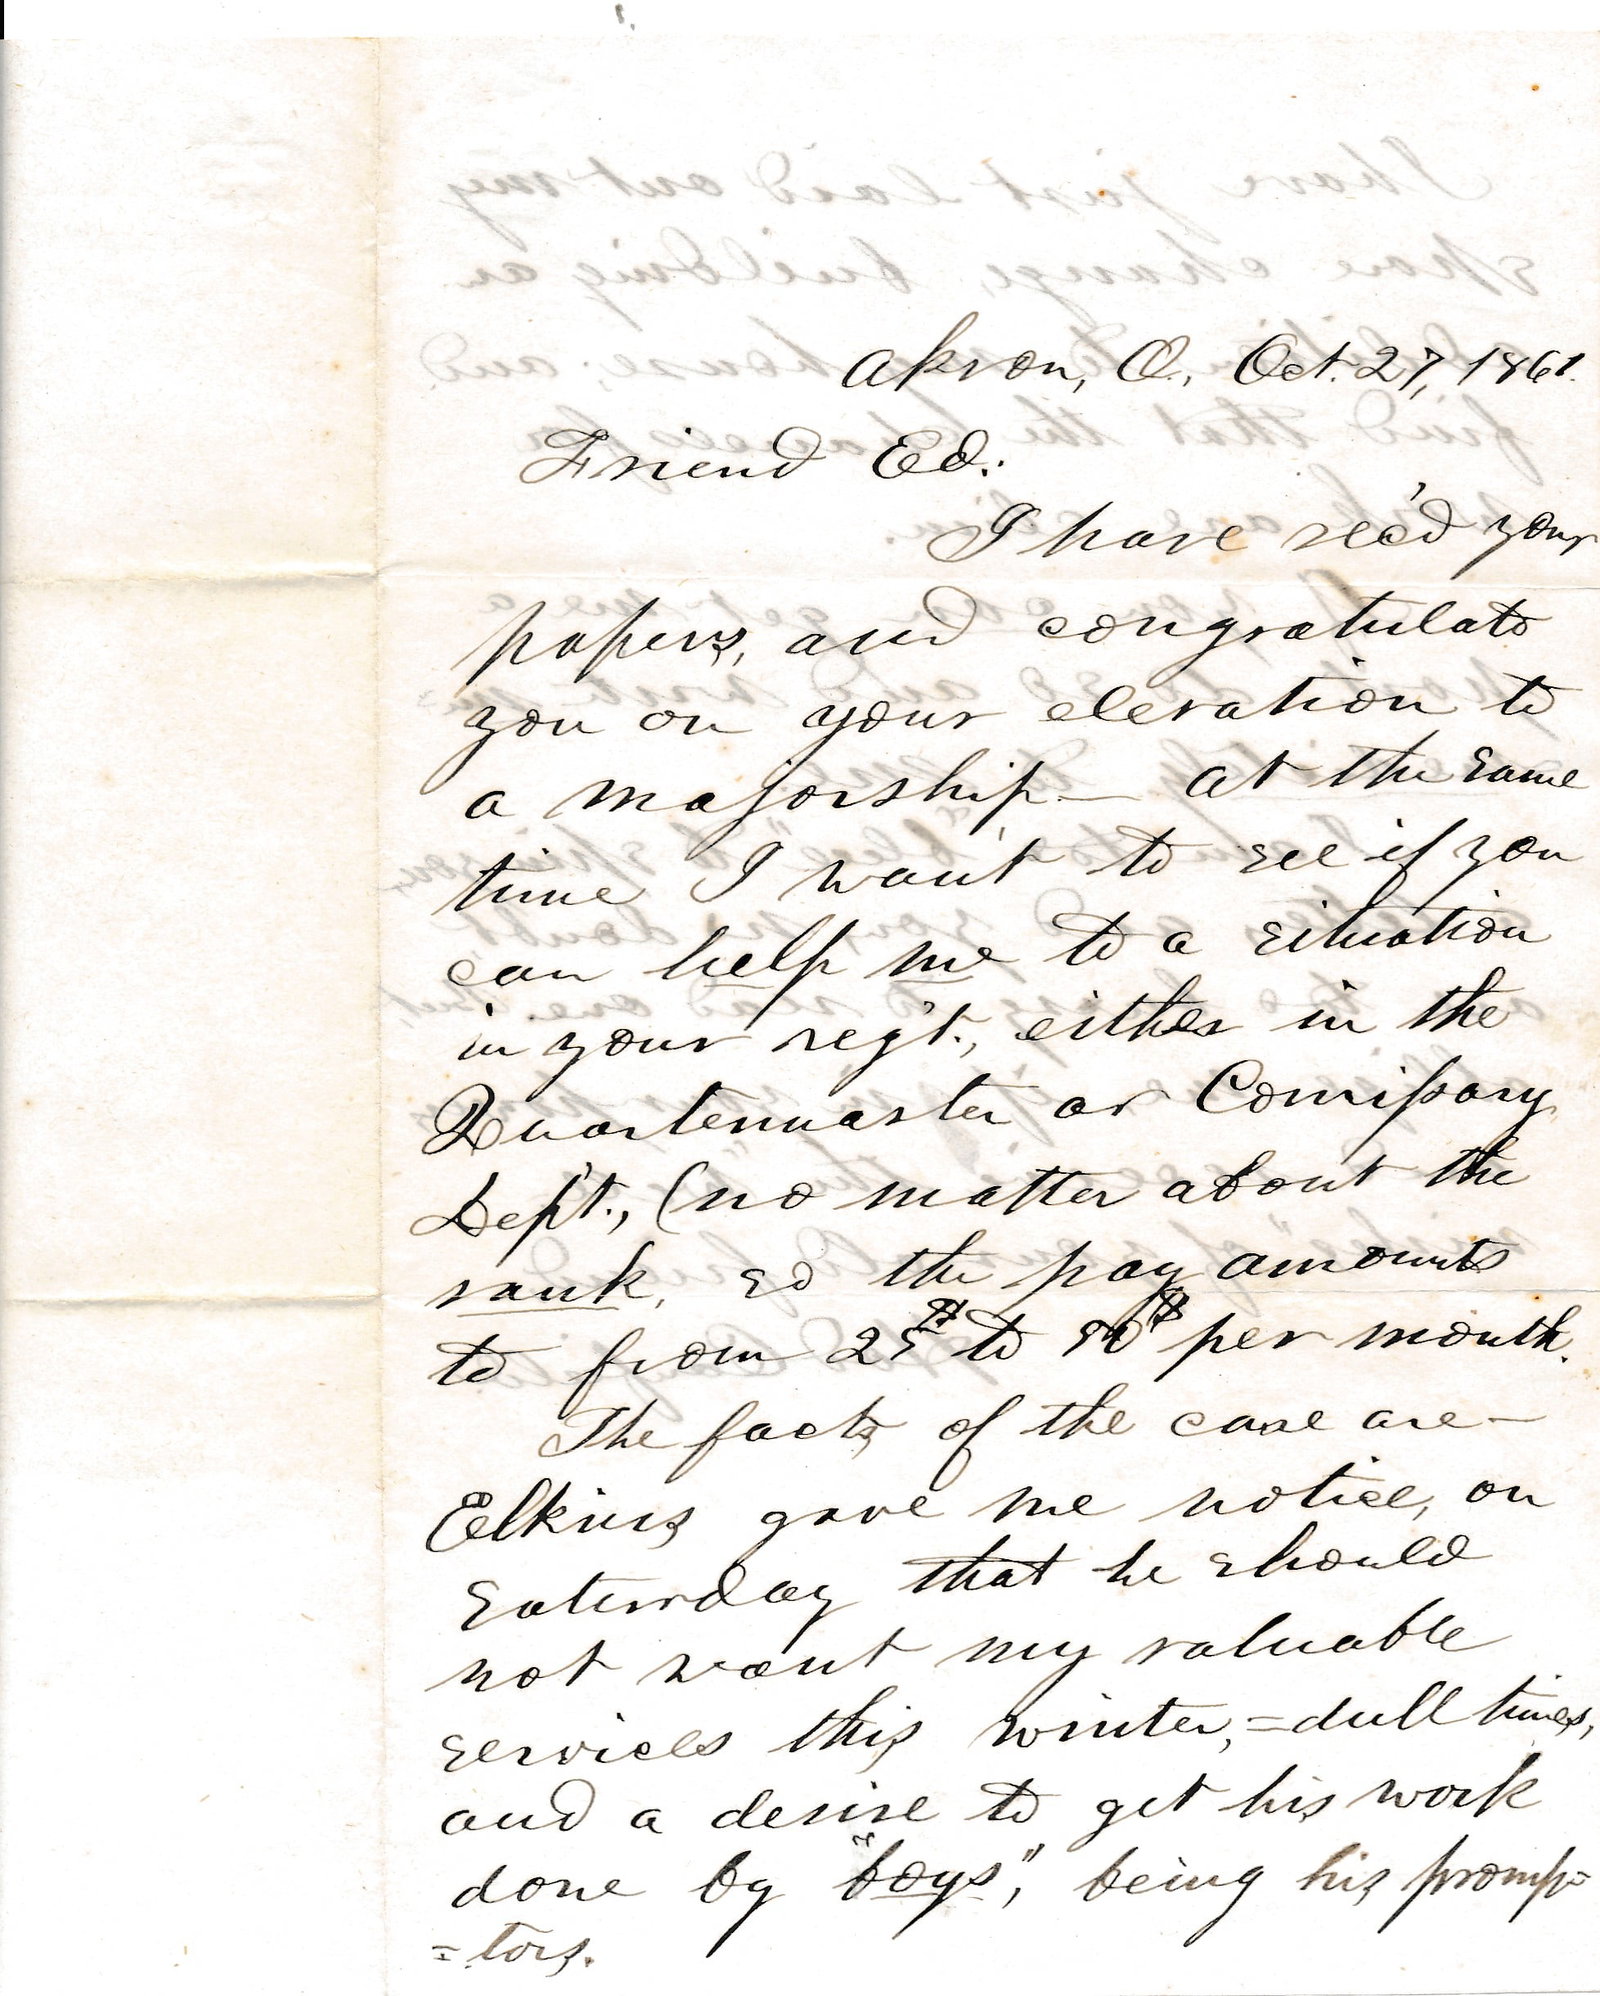 Akron, O., Oct. 27, 1861.
Friend Ed.:
I have rec'd your
papers, and congratulate
you on your elevation to
a majorship — at the same
time I want to see if you
can help me to a situation
in your reg't., either in the
Quartermaster or Comissary
Dept., (no matter about the
rank, so the pay amounts
to from 25$ to 50$ per month.
The facts of the case are —
Elkins gave me notice, on
Saturday that he should
not want my valuable
services this winter, = dull times,
and a desire to get his work
done by "boys", being his promp=
=tors.